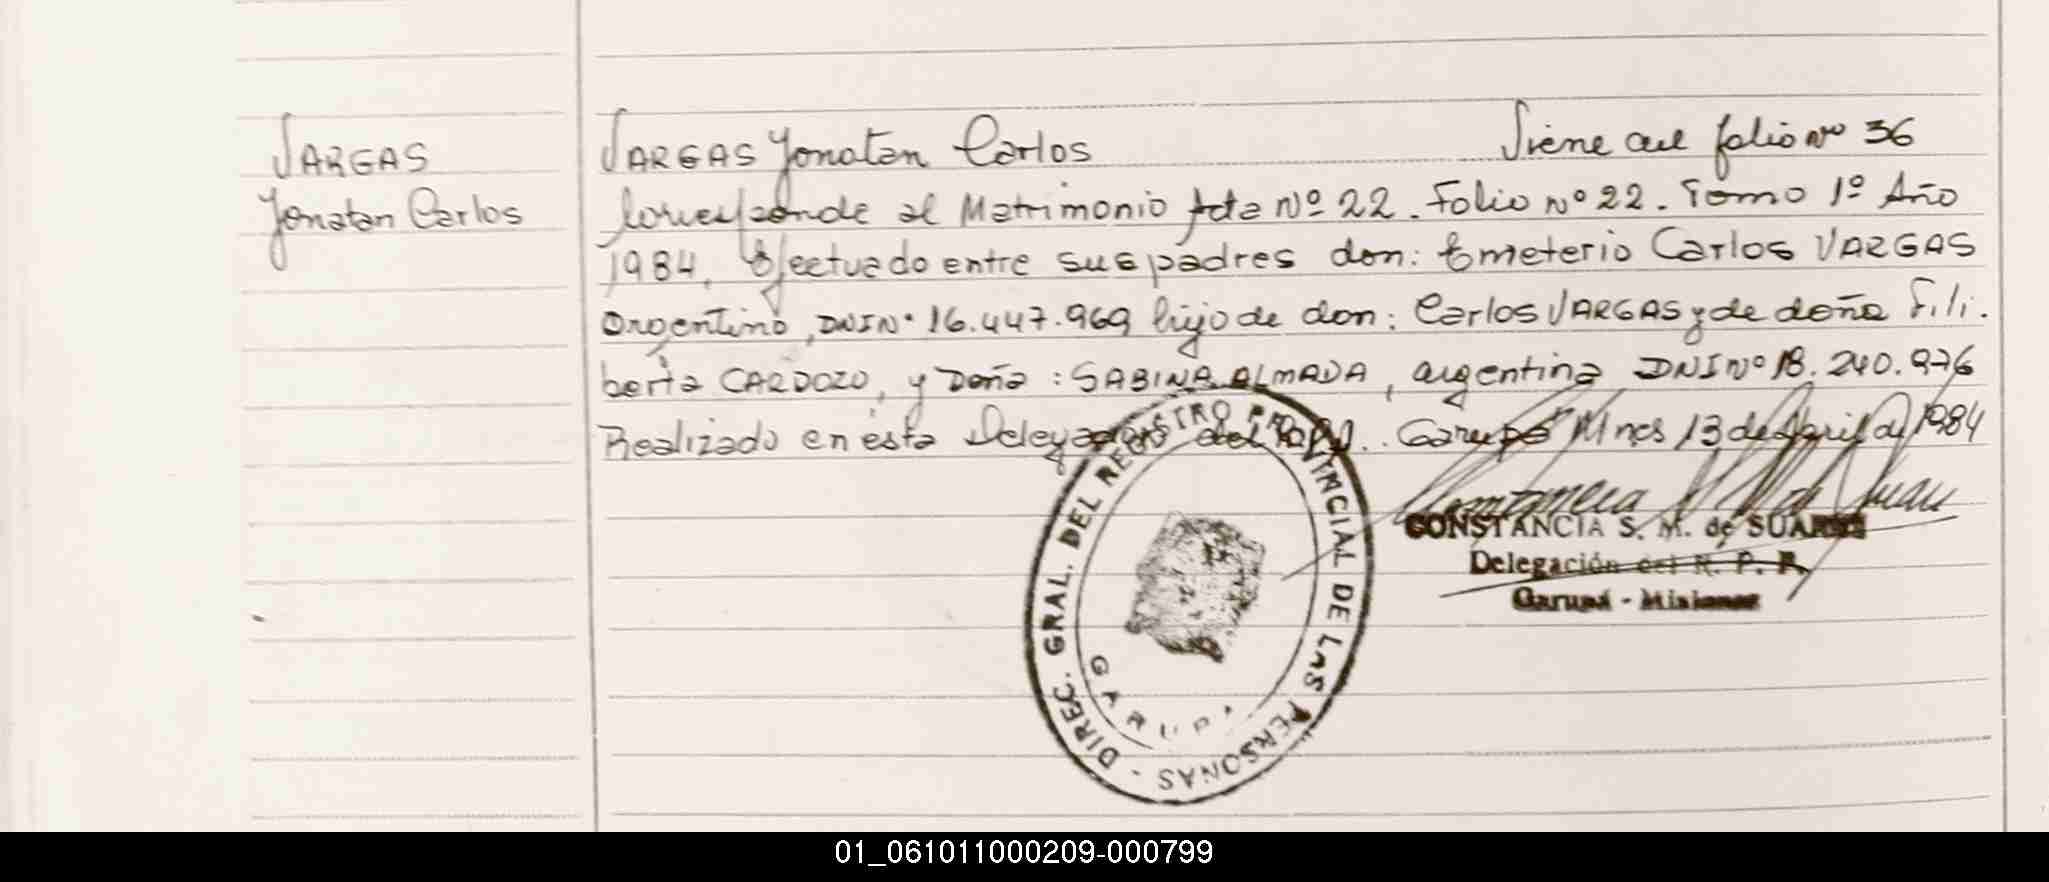 VARGAS
Yonatan Carlos
VARGAS Yonatan Carlos Viene del folio nº 36
Corresponde al Matrimonio Acta Nº 22. Folio nº 22. Tomo 1º Año
1984, Efectuado entre sus padres don: Emeterio Carlos VARGAS
Argentino, DNI Nº 16.447.969 hijo de don: Carlos VARGAS y de doña Fili.
berta CARDOZO, y Doña: SABINA ALMADA, argentina DNI Nº 18.240.976
Realizado en ésta Delegación del Garupá Mnes 13 de Abril de 1984
CONSTANCIA S. M. de SUAREZ
Delegación del R. P. P.
Garupá - Misiones
DIREC. GRAL. DEL REGISTRO PROVINCIAL DE LAS PERSONAS -
GARUPA
01_061011000209-000799